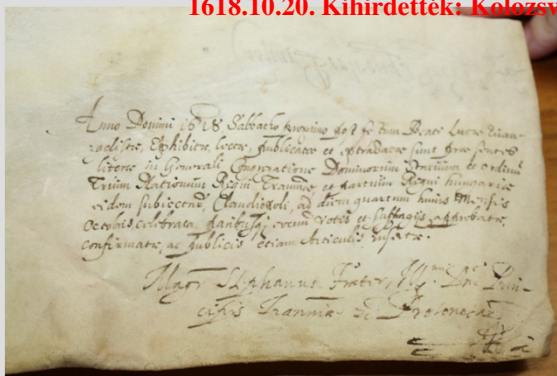 1618.10.20. Kihirdették: Kolozsv
Anno Domini 1618 Sabbatho proximo post festum Beati Lucae Evan-
gelistae, Exhibitae, lectae, publicatae et extradatae sunt praesentes
literae in Generali Congregatione Dominorum et ordinu
Trium Nationum Regni Tranniae et partium Regni Hungariae
eidem subiectaru, Claudiopoli, ad diem quartum huius Mensis
Octobris celebrata, eorum votis et suffragiis approbatae,
confirmatae, ac publicis etiam Articulis insertae.
Stephanus Frater
Tranniae